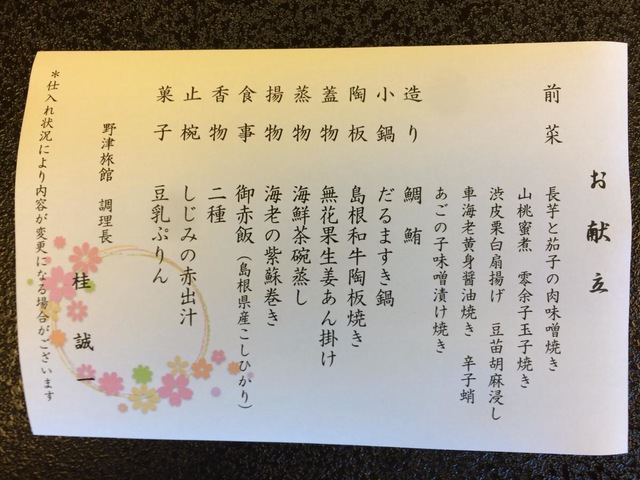 お献立
前菜　長芋と茄子の肉味噌焼き
山桃蜜煮　零余子玉子焼き
渋皮栗白扇揚げ　豆苗胡麻浸し
車海老黄身醤油焼き　辛子蛸
あごの子味噌漬け焼き
造り　鯛　鮪
小鍋　だるますき鍋
陶板　島根和牛陶板焼き
蓋物　無花果生姜あん掛け
蒸物　海鮮茶碗蒸し
揚物　海老の紫蘇巻き
食事　御赤飯（島根県産こしひかり）
香物　二種
止椀　しじみの赤出汁
菓子　豆乳ぷりん
野津旅館　調理長
桂　誠一
＊仕入れ状況により内容が変更になる場合がございます